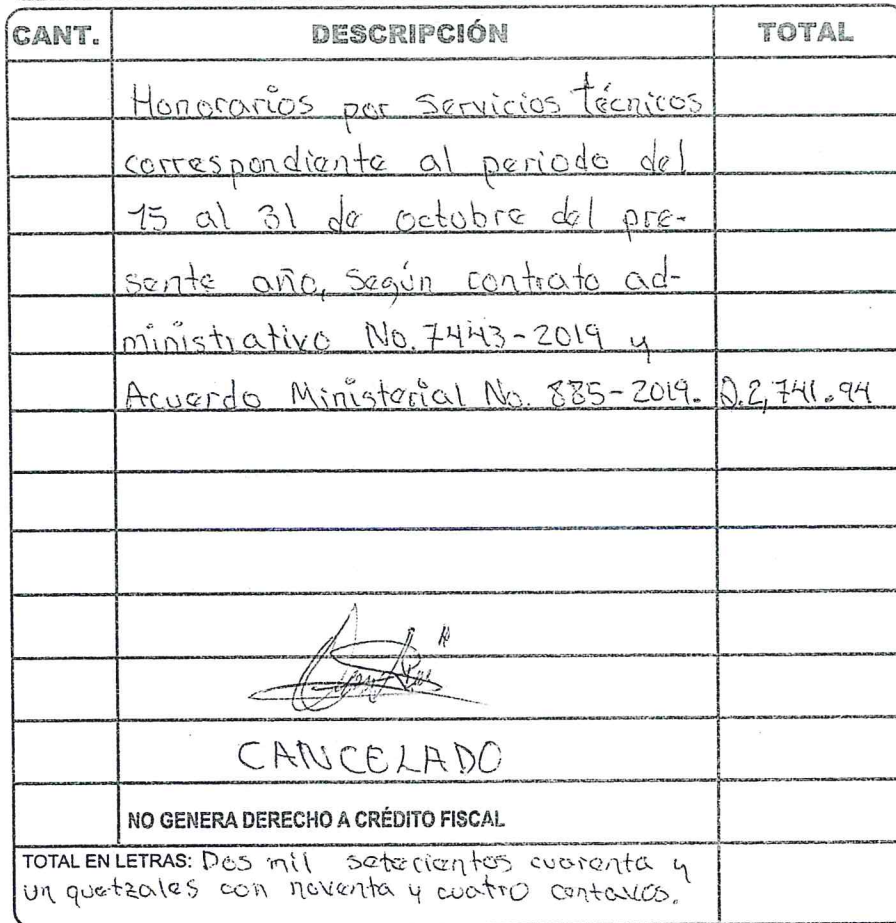 CANT. DESCRIPCIÓN TOTAL
Honorarios por Servicios técnicos
correspondiente al periodo del
15 al 31 de octubre del pre-
sente año, Según contrato ad-
ministrativo No. 7443-2019 y
Acuerdo Ministerial No. 885-2019. Q.2,741.94
CANCELADO
NO GENERA DERECHO A CRÉDITO FISCAL
TOTAL EN LETRAS: Dos mil setecientos cuarenta y
un quetzales con noventa y cuatro centavos.